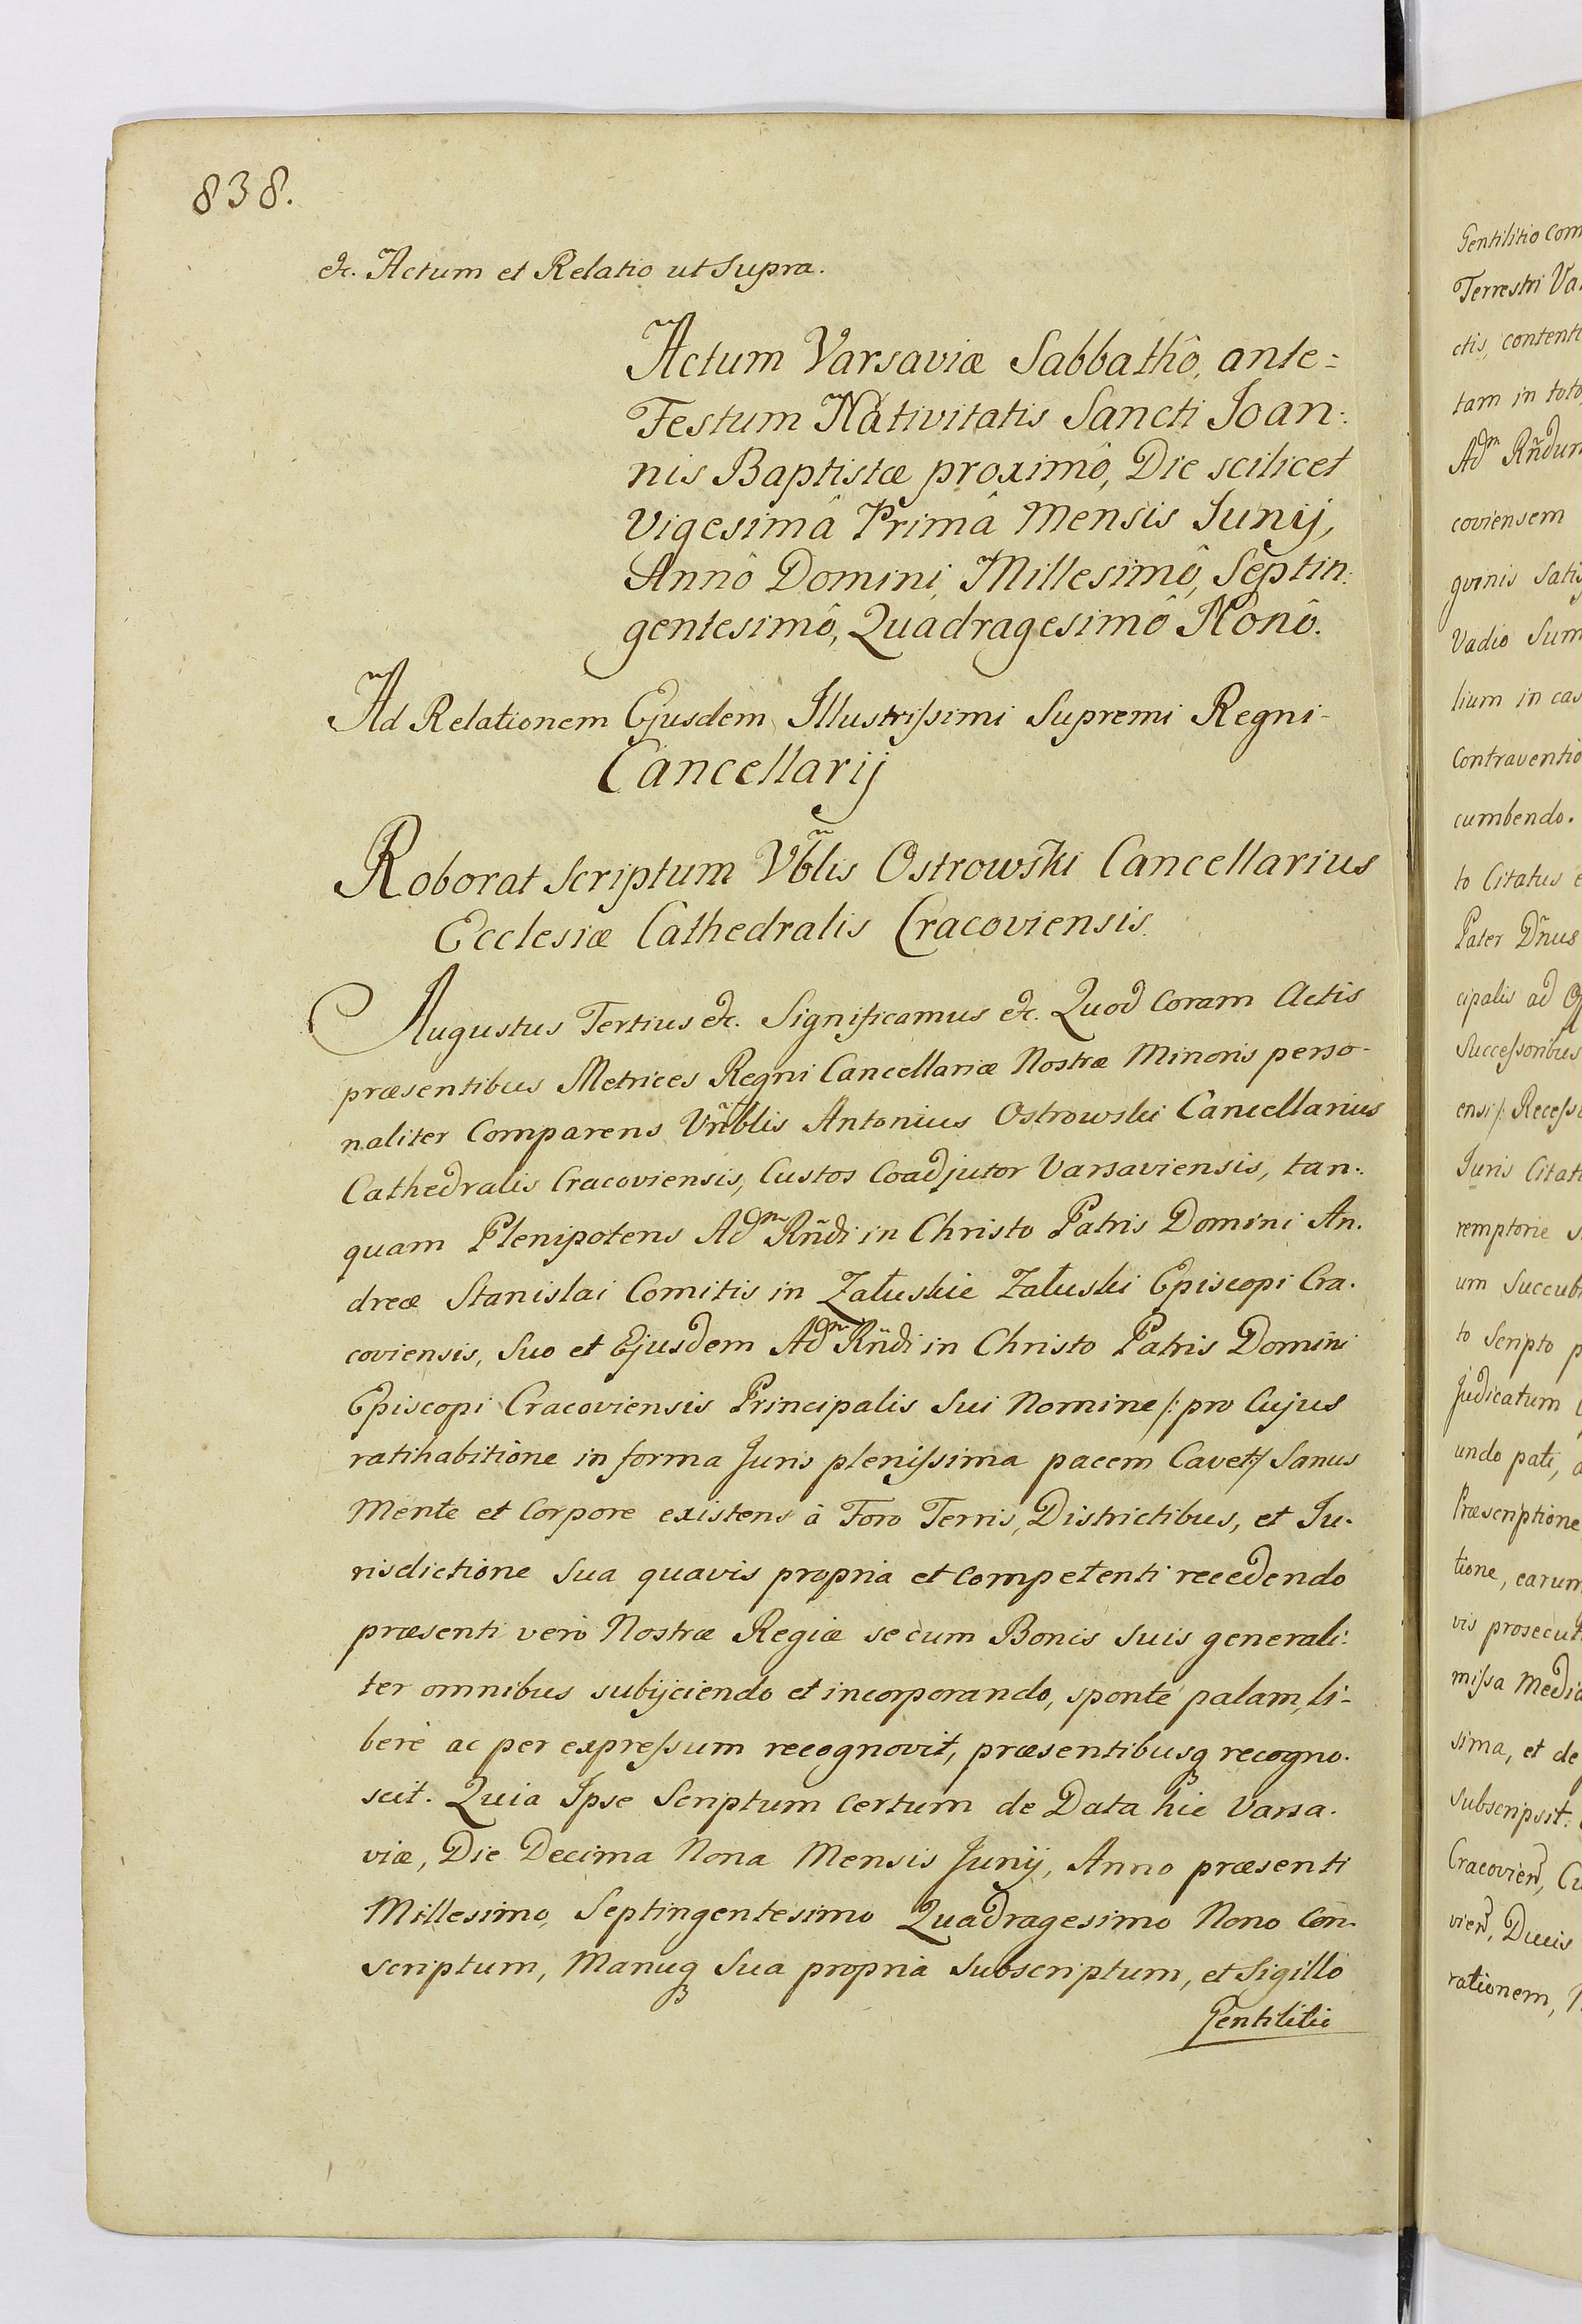 838.
etc. Actum et Relatio ut Supra.
Actum Varsaviæ Sabbathô, ante=
Festum Nativitatis Sancti Joan:
nis Baptistæ proximô, Die scilicet
Vigesimâ Primâ Mensis Junij,
Annô Domini, Millesimô, Septin:
gentesimô, Quadragesimô Nonô.
Ad Relationem Ejusdem Illustrissimi Supremi Regni-
Cancellarij
Roborat Scriptum Vñblis Ostrowski Cancellarius
Ecclesiæ Cathedralis Cracoviensis.
Augustus Tertius etc. Significamus etc. Quod Coram Actis
præsentibus Metrices Regni Cancellariæ Nostræ Minoris perso-
naliter Comparens Vñblis Antonius Ostrowski Cancellarius
Cathedralis Cracoviensis, Custos Coadjutor Varsaviensis, tan:
quam Plenipotens Adm Rñdi in Christo Patris Domini An.
dreæ Stanislai Comitis in Załuskie Załuski Episcopi Cra.
coviensis, Suo et Ejusdem Adm Rñdi in Christo Patris Domini
Episcopi Cracoviensis Principalis Sui Nomine /: pro Cujus
ratihabitione in forma Juris plenissima pacem Cavet:/ Sanus
Mente et Corpore existens à Foro Terris, Districtibus, et Ju.
risdictione Sua quavis propria et competenti recedendo
præsenti verò Nostræ Regiæ se cum Bonis Suis generali:
ter omnibus subijciendo et incorporando, sponte palam, li-
berè ac per expressum recognovit, præsentibusq recogno.
scit. Quia Ipse Scriptum Certum de Data hic Varsa.
viæ, Die Decima Nona Mensis Junij, Anno præsenti
Millesimo, Septingentesimo Quadragesimo Nono Con-
scriptum, Manuq Sua propria Subscriptum, et Sigillo
Gentilitio
Gentilitio Com
Terrestri Va
ctis, contenti
tam in toto
Adm Rñdum
coviensem
gvinis Satis
Vadio Sum
lium in cas
Contraventio
cumbendo.
to Citatus e
Pater Dñus
cipalis ad
Successoribus
ensi /: Recessi
Juris Citati
remptorie
um Succub
to Scripto p
Judicatum
undo pati,
Præscriptione
tione, earum
vis prosecut
missa Media
sima, et de
Subscripsit:
Cracovien, Cu
vien, Ducis
rationem,